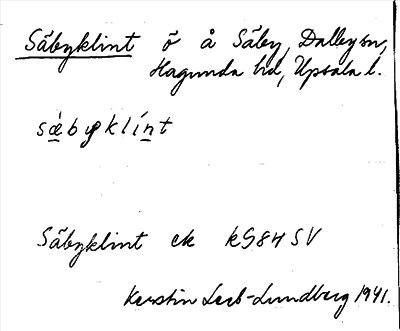 Säbyklint ö å Säby, Dalby sn,
Hagunda hd, Upsala l.
sǽbyklínt
Säbyklint ek kS84SV
Kerstin Leib-Lundberg 1941.